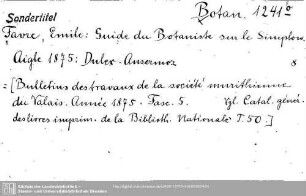 Botan. 1241º
Sondertitel
Favre, Emile: Guide du Botaniste sur le Simplon.
Aigle 1875: Dulex-Ansermoz 8
= [Bulletins des travaux de la société murithienne
du Valais. Année 1875. Fasc. 5. Vgl. Catal. génér.
des livres imprim. de la Biblioth. Nationale T. 50.]